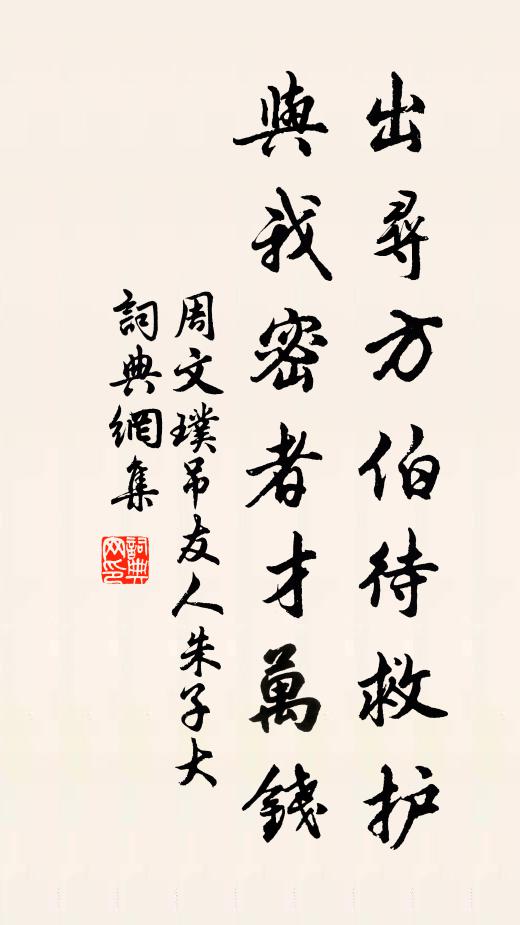 出尋方伯待救护
與我密者才萬錢
周文璞吊友人朱子大
詞典網集
詞典網印